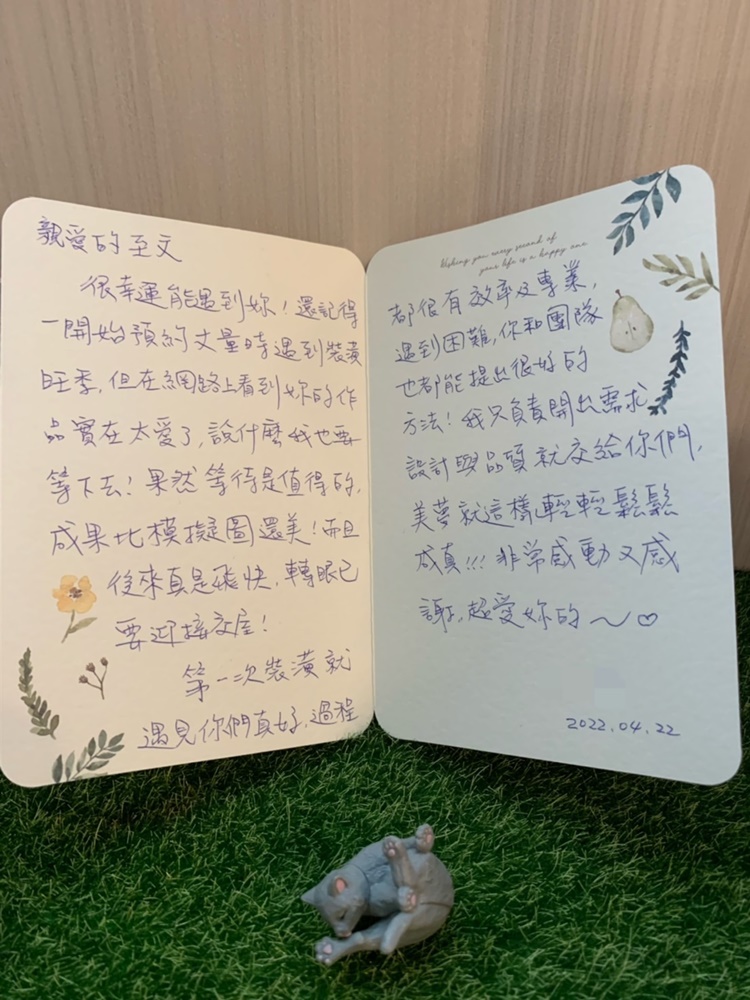 親愛的至文
很幸運能遇到妳！還記得
一開始預約丈量時遇到裝潢
旺季，但在網路上看到妳的作
品實在太愛了，說什麼我也要
等下去！果然等待是值得的，
成果比模擬圖還美！而且
後來真是飛快，轉眼已
要迎接交屋！
第一次裝潢就
遇見你們真好，過程
Wishing you every second of
your life is a happy one
都很有效率及專業，
遇到困難，你和團隊
也都能提出很好的
方法！我只負責開出需求
設計與品質就交給你們，
美夢就這樣輕輕鬆鬆
成真!!! 非常感動又感
謝，超愛妳的～♡
2022.04.22